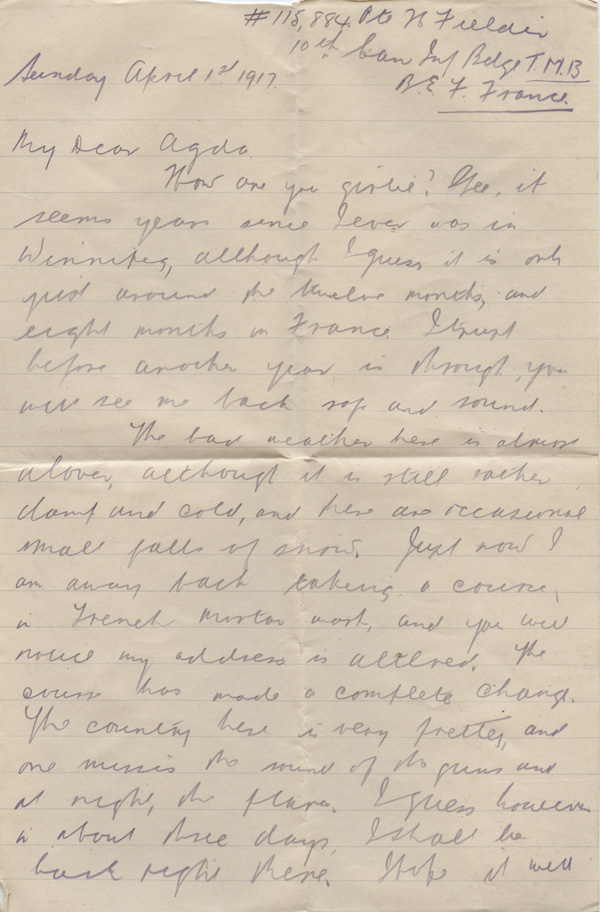 #115,884. Pte N Fielder
10th Can Inf Bdge T.M.B
B.E.F. France.
Sunday April 1st 1917.
My Dear Agda.
How are you girlie? Gee, it
seems years since I ever was in
Winnipeg, although I guess it is only
just around the twelve months, and
eight months in France. I trust
before another year is through, you
will see me back safe and sound.
The bad weather here is almost
alover, although it is still rather
damp and cold, and there are occasional
small falls of snow. Just now I
am away back taking a course,
in Trench Mortar work, and you will
notice my address is altered. The
course has made a complete change.
The country here is very pretty, and
one misses the sound of the guns and
at night, the flares. I guess however
in about three days, I shall be
back right there. I hope it will